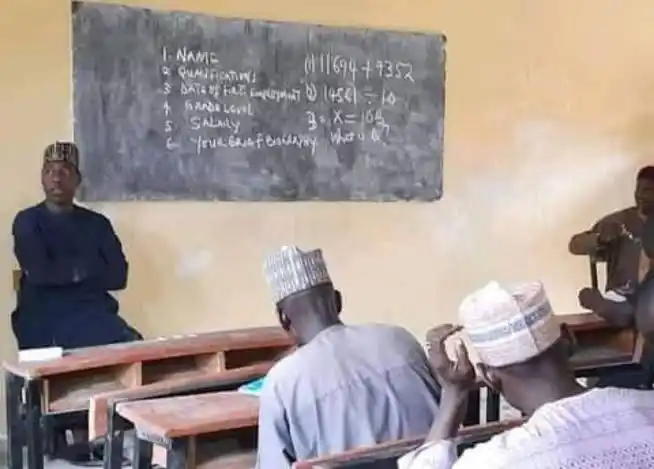 1. NAME
2 QUALIFICATIONS
3 DATE OF FIRST EMPLOYMENT
4 GRADE LEVEL
5 SALARY
6 YOUR BRIEF BIOGRAPHY
(1) 11694 + 9352
÷ 10
What is